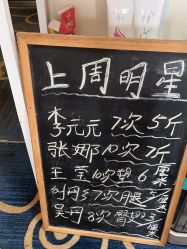 上周明星
李元元 7次 5斤
张娜 10次 7斤
王莹 10次 翘 6厘米
刘冈乡 7次 腿 5厘米
吴丹 8次 臀翘 3厘米